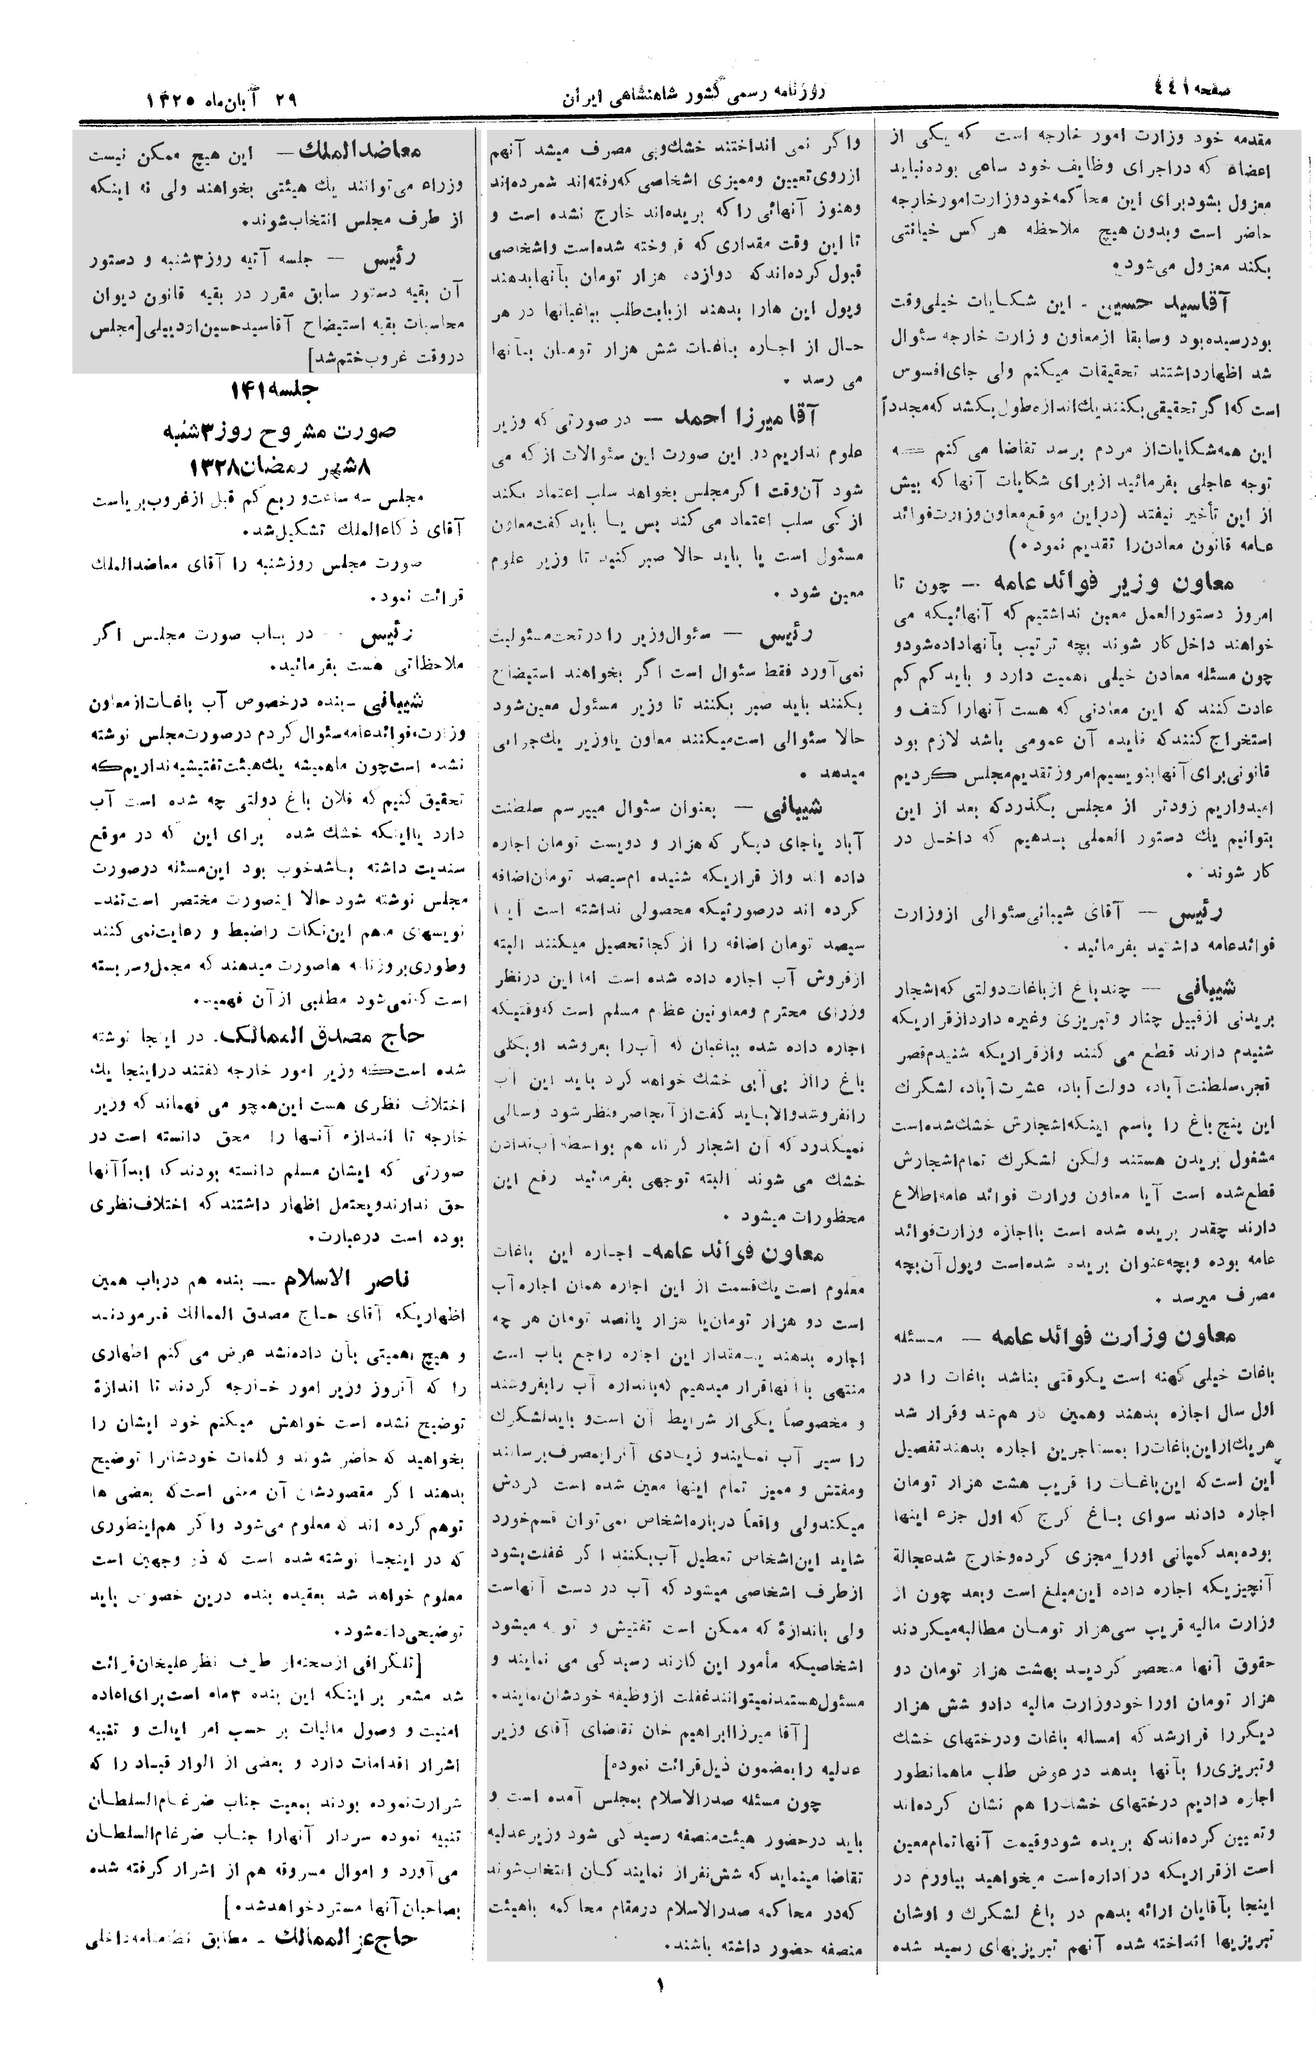 صفحه ۴۴۱
روزنامه رسمی کشور شاهنشاهی ایران
۲۹ آبان‌ماه ۱۳۲۵
مقدمه خود وزارت امور خارجه است که یکی از
اعضاء که دراجرای وظایف خود ساعی بوده نباید
معزول بشود برای این محاکمه خود وزارت امور خارجه
حاضر است وبدون هیچ ملاحظه هر کس خیانتی
بکند معزول می‌شود.
آقاسید حسین - این شکایات خیلی وقت
بود رسیده بود وسابقا ازمعاون وزارت خارجه سئوال
شد اظهار داشتند تحقیقات میکنم ولی جای افسوس
است که اگر تحقیقی بکنند یک اندازه طول بکشد که مجدداً
این همه شکایات از مردم برسد تقاضا می کنم که
توجه عاجلی بفرمائید ازبرای شکایات آنها که بیش
از این تأخیر نیفتد (دراین موقع معاون وزارت فوائد
عامه قانون معادن را تقدیم نمود.)
معاون وزیر فوائد عامه — چون تا
امروز دستورالعمل معین نداشتیم که آنهائیکه می
خواهند داخل کار شوند بچه ترتیب بآنها داده شود و
چون مسئله معادن خیلی اهمیت دارد و باید کم کم
عادت کنند که این معادنی که هست آنها را کشف و
استخراج کنند که فایده آن عمومی باشد لازم بود
قانونی برای آنها بنویسیم امروز تقدیم مجلس کردیم
امیدواریم زودتر از مجلس بگذرد که بعد از این
بتوانیم یک دستور العملی بدهیم که داخل در
کار شوند.
رئیس — آقای شیبانی سئوالی ازوزارت
فوائد عامه داشتید بفرمائید.
شیبانی — چند باغ از باغات دولتی که اشجار
بریدنی ازقبیل چنار وتبریزی وغیره دارد ازقراریکه
شنیدم دارند قطع می کنند وازقراریکه شنیدم قصر
قجر، سلطنت آباد، دولت آباد، عشرت آباد، لشکرک
این پنج باغ را باسم اینکه اشجارش خشک شده است
مشغول بریدن هستند ولکن لشکرک تمام اشجارش
قطع شده است آیا معاون وزارت فوائد عامه اطلاع
دارند چقدر بریده شده است بااجازه وزارت فوائد
عامه بوده وبچه عنوان بریده شده است وپول آن بچه
مصرف میرسد.
معاون وزارت فوائد عامه — مسئله
باغات خیلی کهنه است یکوقتی بناشد باغات را در
اول سال اجاره بدهند وهمین کار هم شد وقرار شد
هر یک از این باغات را بمستاجرین اجاره بدهند تفصیل
این است که این باغات را قریب هشت هزار تومان
اجاره دادند سوای باغ کرج که اول جزء اینها
بوده بعد کمپانی اورا مجزی کرده وخارج شد عجالة
آنچیزیکه اجاره داده این مبلغ است وبعد چون از
وزارت مالیه قریب سی هزار تومان مطالبه میکردند
حقوق آنها منحصر کردید بهشت هزار تومان دو
هزار تومان اورا خود وزارت مالیه داد و شش هزار
دیگر را قرار شد که امساله باغات ودرختهای خشک
وتبریزی را بآنها بدهد در عوض طلب ماهمانطور
اجاره دادیم درختهای خشک را هم نشان کرده‌اند
وتعیین کرده‌اند که بریده شود وقیمت آنها تمام معین
است ازقراریکه در اداره است میخواهید بیاورم در
اینجا بآقایان ارائه بدهم در باغ لشکرک و اوشان
تبریزیها انداخته شده آنهم تبریزیهای رسید شده
واگر نمی انداختند خشک وبی مصرف میشد آنهم
ازروی تعیین وممیزی اشخاصی که رفته‌اند شمرده‌اند
وهنوز آنهائی را که بریده‌اند خارج نشده است و
تا این وقت مقداری که فروخته شده است واشخاصی
قبول کرده‌اند که دوازده هزار تومان بآنها بدهند
وپول این هارا بدهند ازبابت طلب بباغبانها در هر
حال از اجاره باغات شش هزار تومان بآنها
می رسد.
آقا میرزا احمد — در صورتی که وزیر
علوم نداریم در این صورت این سئوالات از که می
شود آن وقت اگر مجلس بخواهد سلب اعتماد بکند
از کی سلب اعتماد می کند پس یا باید کفت معاون
مسئول است یا باید حالا صبر کنید تا وزیر علوم
معین شود.
رئیس — سئوال وزیر را در تحت مسئولیت
نمی آورد فقط سئوال است اگر بخواهند استیضاح
بکنند باید صبر بکنند تا وزیر مسئول معین شود
حالا سئوالی است میکنند معاون یا وزیر یک جوابی
میدهد.
شیبانی — بعنوان سئوال میپرسم سلطنت
آباد یا جای دیگر که هزار و دویست تومان اجاره
داده اند واز قراریکه شنیده ام سیصد تومان اضافه
کرده اند درصورتیکه محصولی نداشته است آیا
سیصد تومان اضافه را از کجا تحصیل میکنند البته
ازفروش آب اجاره داده شده است اما این درنظر
وزرای محترم ومعاونین عظام مسلم است که وقتیکه
اجاره داده شده بباغبان که آب را بفروشد او بکلی
باغ را از بی آبی خشک خواهد کرد باید این آب
را نفروشد والا باید کفت از آنجا صرفنظر شود وسالی
نمیکذرد که آن اشجار کرانه هم بواسطه آب ندادن
خشک می شوند البته توجهی بفرمائید رفع این
محظورات میشود.
معاون فوائد عامه - اجاره این باغات
معلوم است یک قسمت از این اجاره همان اجاره آب
است دو هزار تومان یا هزار پانصد تومان هر چه
اجاره بدهند یک مقدار این اجاره راجع بآب است
منتهی با آنها قرار میدهیم که باندازه آب رابفروشند
و مخصوصاً یکی از شرایط آن است و باید لشکرک
را سیر آب نمایند و زیادی آنرا بمصرف برسانند
ومفتش و ممیز تمام اینها معین شده است گردش
میکند ولی واقعاً درباره اشخاص نمی توان قسم خورد
شاید این اشخاص تعطیل آب بکنند اگر غفلت بشود
از طرف اشخاصی میشود که آب در دست آنهاست
ولی باندازۀ که ممکن است تفتیش و توجه میشود
اشخاصیکه مأمور این کارند رسیدگی می نمایند و
مسئول هستند نمیتوانند غفلت ازوظیفه خودشان نمایند.
[آقا میرزا ابراهیم خان تقاضای آقای وزیر
عدلیه را بمضمون ذیل قرائت نموده]
چون مسئله صدرالاسلام بمجلس آمده است و
باید در حضور هیئت منصفه رسیدگی شود وزیر عدلیه
تقاضا مینماید که شش نفر از نمایندگان انتخاب شوند
که در محاکمه صدرالاسلام درمقام محاکمه باهیئت
منصفه حضور داشته باشند.
معاضدالملک — این هیچ ممکن نیست
وزراء می‌توانند یک هیئتی بخواهند ولی نه اینکه
از طرف مجلس انتخاب شوند.
رئیس — جلسه آتیه روز ۳ شنبه و دستور
آن بقیه دستور سابق مقرر در بقیه قانون دیوان
محاسبات بقیه استیضاح آقاسید حسین اردبیلی [مجلس
دروقت غروب ختم شد]
جلسه ۱۴۱
صورت مشروح روز ۳ شنبه
۸ شهر رمضان ۱۳۲۸
مجلس سه ساعت و ربع کم قبل از غروب بریاست
آقای ذکاءالملک تشکیل شد.
صورت مجلس روز شنبه را آقای معاضدالملک
قرائت نمود.
رئیس - در باب صورت مجلس اگر
ملاحظاتی هست بفرمائید.
شیبانی - بنده درخصوص آب باغات از معاون
وزارت فوائد عامه سئوال کردم درصورت مجلس نوشته
نشده است چون ماهمیشه یک هیئت تفتیشیه نداریم که
تحقیق کنیم که فلان باغ دولتی چه شده است آب
دارد یا اینکه خشک شده برای این که در موقع
سندیت داشته باشد خوب بود این مسئله درصورت
مجلس نوشته شود حالا اینصورت مختصر است تند-
نویسهای مهم این نکات راضبط و رعایت نمی کنند
وطوری بروزنامه ها صورت میدهند که مجمل وسر بسته
است که نمی شود مطلبی از آن فهمید.
حاج مصدق الممالک - در اینجا نوشته
شده است که وزیر امور خارجه گفتند در اینجا یک
اختلاف نظری هست این همچو می فهماند که وزیر
خارجه تا اندازه آنها را محق دانسته است در
صورتی که ایشان مسلم دانسته بودند که ابداً آنها
حق ندارند و یحتمل اظهار داشتند که اختلاف نظری
بوده است در عبارت.
ناصر الاسلام — بنده هم درباب همین
اظهاریکه آقای حاج مصدق الممالک فرمودند
و هیچ اهمیتی بآن داده نشد عرض می کنم اظهاری
را که آنروز وزیر امور خارجه کردند تا اندازۀ
توضیح نشده است خواهش میکنم خود ایشان را
بخواهید که حاضر شوند و کلمات خودشانرا توضیح
بدهند اگر مقصودشان آن معنی است که بعضی ها
توهم کرده اند که معلوم می شود واگر هم اینطوری
که در اینجا نوشته شده است که ذو وجهین است
معلوم خواهد شد بعقیده بنده درین خصوص باید
توضیحی داده شود.
[تلگرافی از صحنه از طرف نظر علیخان قرائت
شد مشعر بر اینکه این بنده ۳ ماه است برای اعاده
امنیت و وصول مالیات بر حسب امر ایالت و تنبیه
اشرار اقدامات دارد و بعضی از الوار قباد را که
شرارت نموده بودند بمعیت جناب ضرغام السلطان
تنبیه نموده سردار آنهارا جناب ضرغام السلطان
می آورد و اموال مسروقه هم از اشرار گرفته شده
بصاحبان آنها مسترد خواهد شد.]
حاج عز الممالک - مطابق نظامنامه داخلی
۱